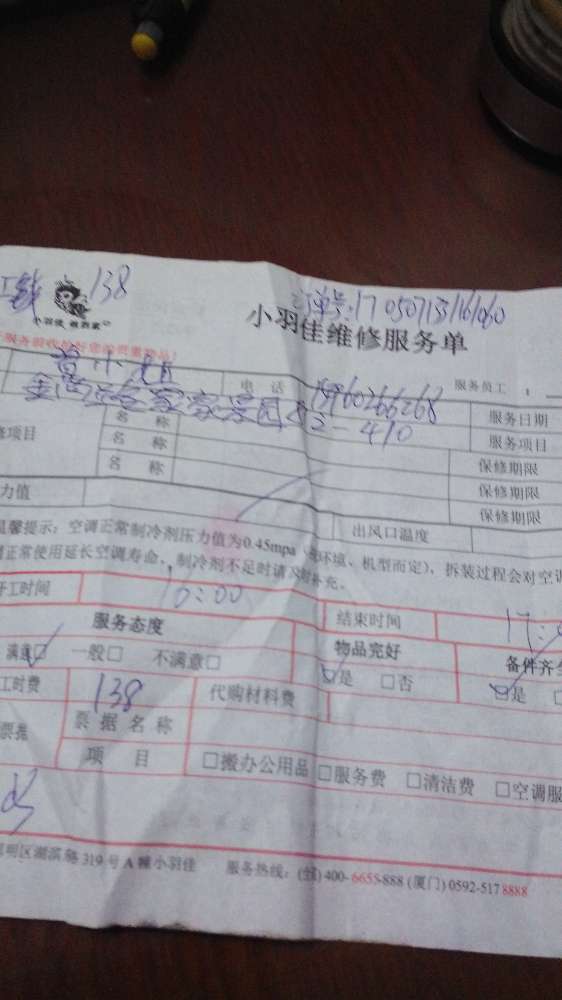 工钱 138 订单号:170507133161060
小羽佳 做到家
小羽佳维修服务单
电 话 服务员工:
服务日期
2-410
名 称 服务项目
修项目 名 称 保修期限
名 称 保修期限
保修期限
力值 出风口温度
温馨提示:空调正常制冷剂压力值为0.45mpa 环境、机型而定),拆装过程会对空
正常使用延长空调寿命,制冷剂不足时请及时补充。
开工时间 16:00 结束时间 17:
服务态度 物品完好 备件齐全
满意☑ 一般□ 不满意□ ☑是 □否 ☑是
工时费 138 代购材料费
票据 票 据 名 称
项 目 □搬办公用品 □服务费 □清洁费 □空调服
思明区湖滨路319号A幢小羽佳 服务热线:(全)400-6655-888 (厦门) 0592-5178888